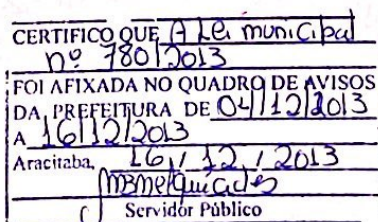 CERTIFICO QUE A Lei municipal
nº 780/2013
FOI AFIXADA NO QUADRO DE AVISOS
DA PREFEITURA DE 04/12/2013
A 16/12/2013
Aracitaba, 16 / 12 / 2013
Servidor Público